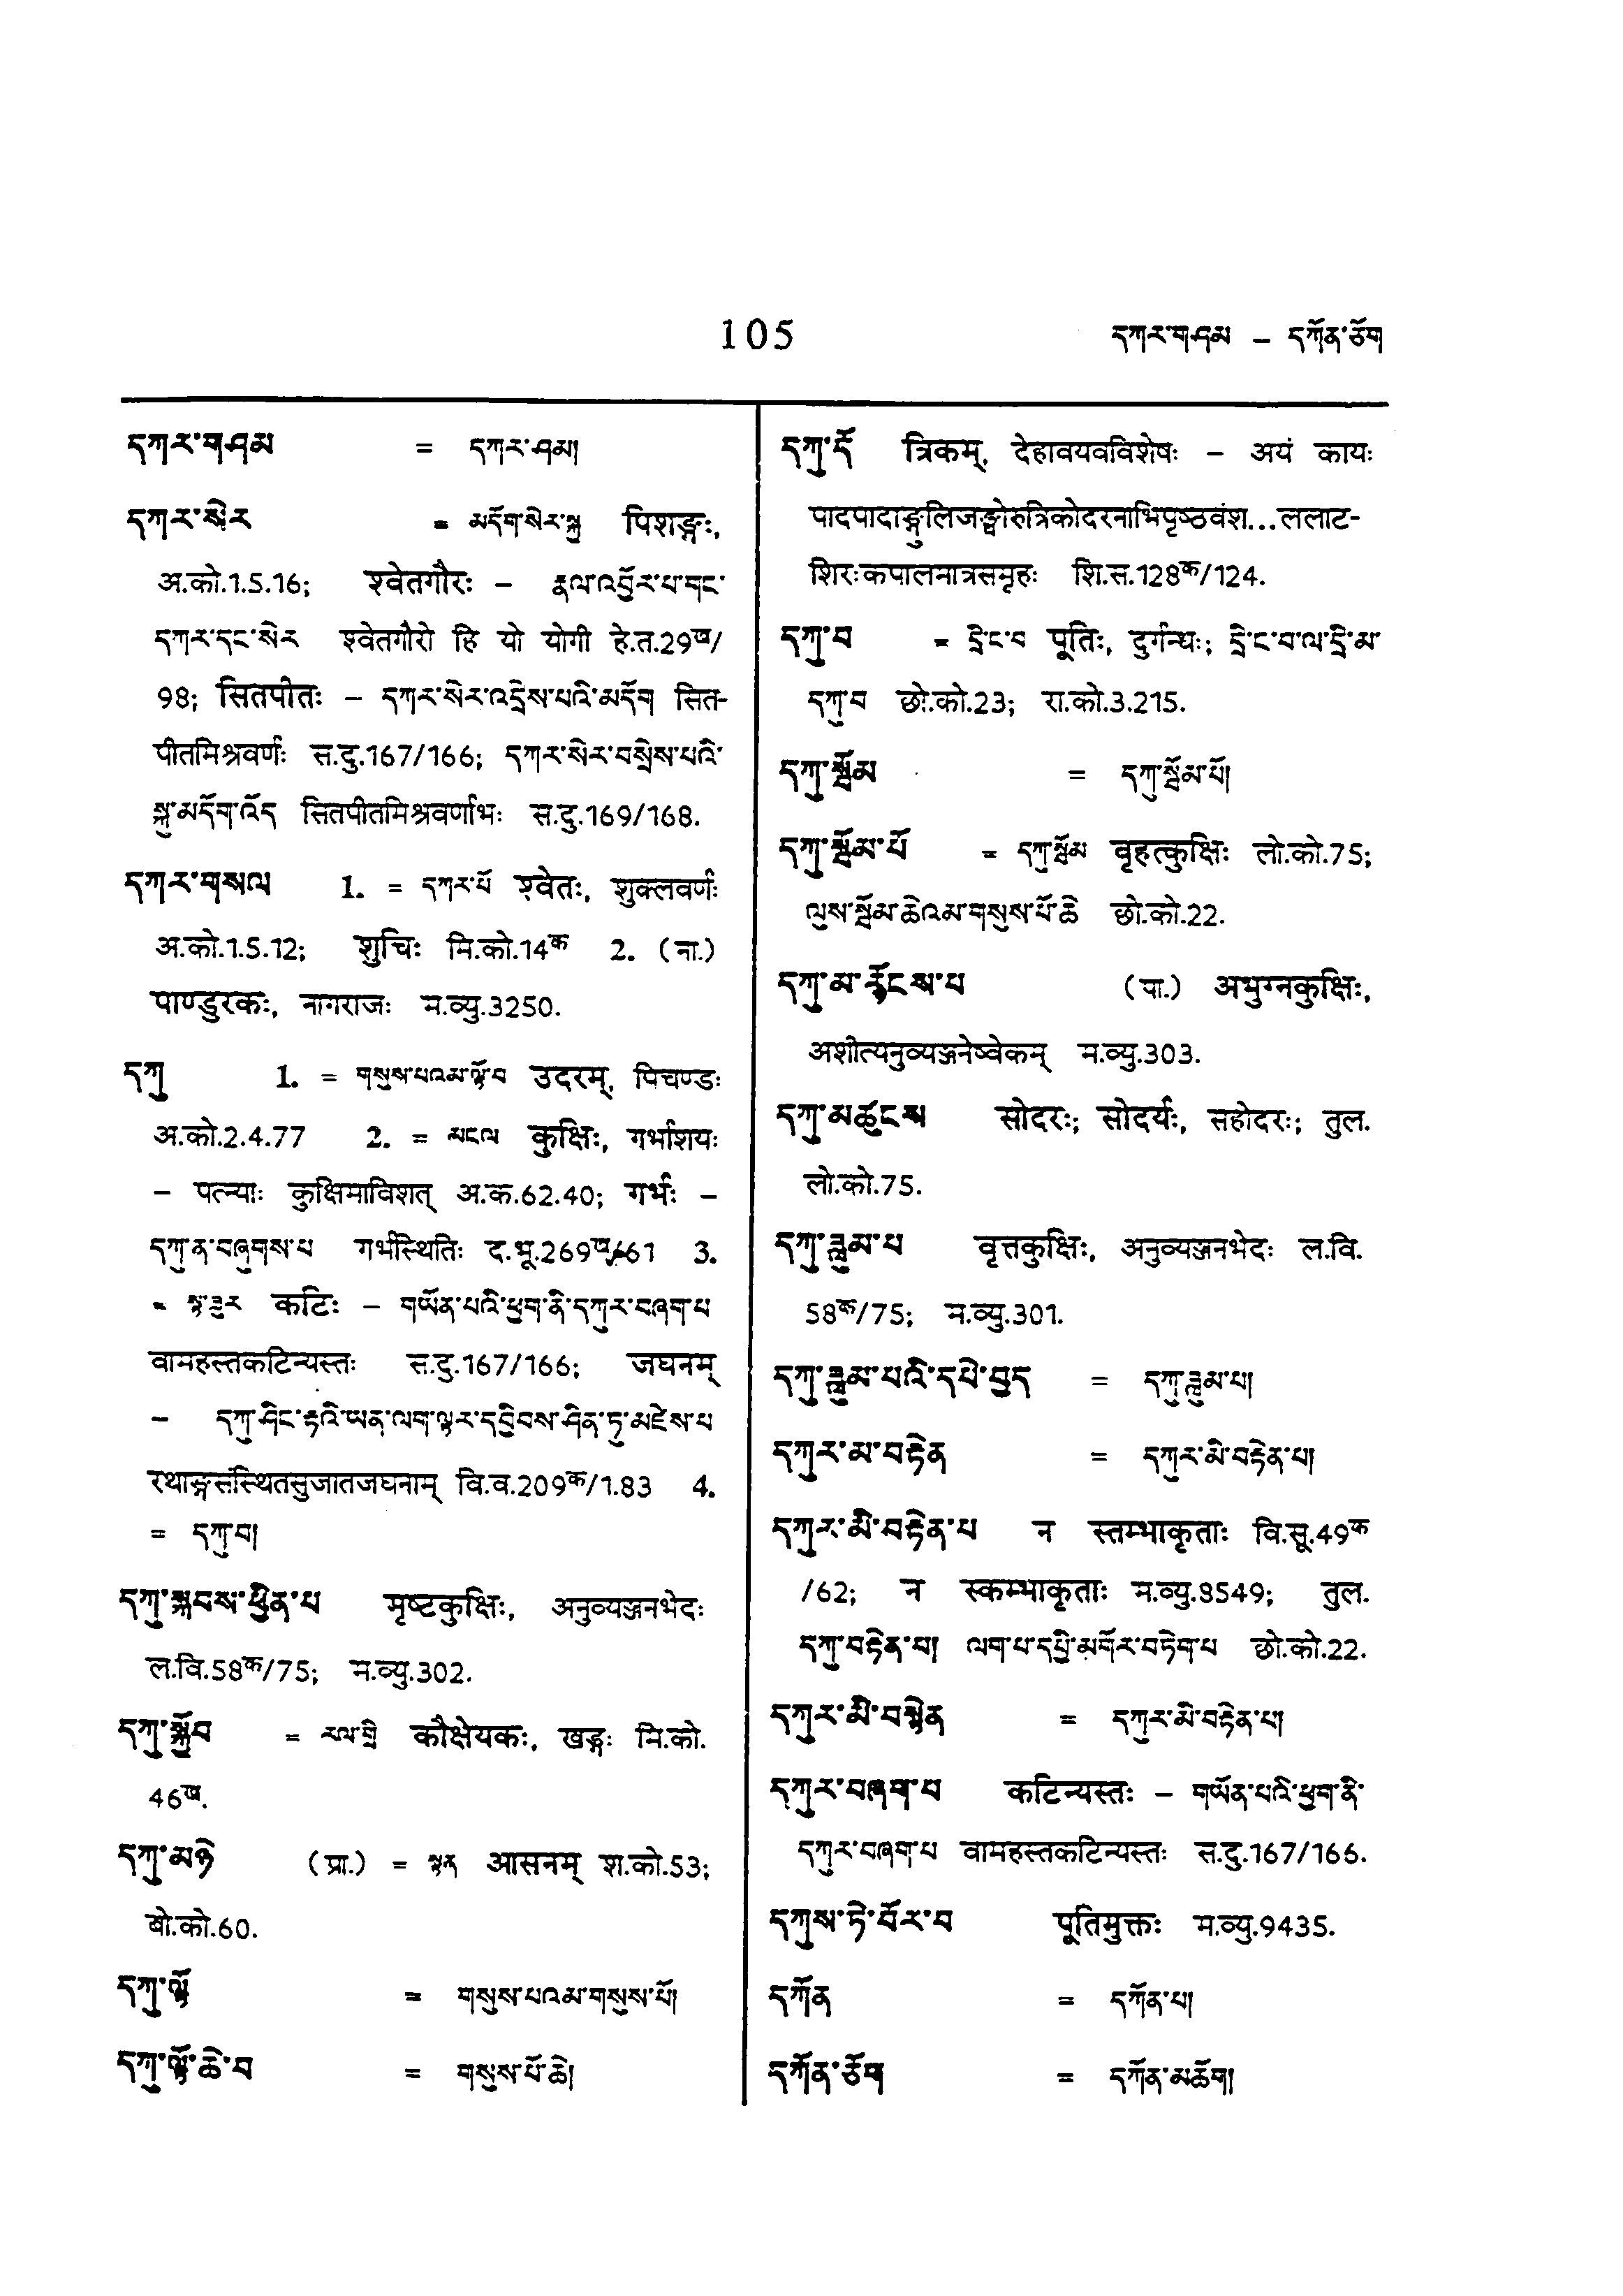 105
དཀར་གཤམ – དཀོན་ཅོག
དཀར་གཤམ = དཀར་ཤམ།
དཀར་སེར = མདོག་སེར་སྐྱ पिशङ्गः,
अ.को.1.5.16; श्वेतगौरः – རྣལ་འབྱོར་པ་གང་
དཀར་དང་སེར श्वेतगौरो हि यो योगी हे.त.29ख/
98; सितपीतः – དཀར་སེར་འདྲེས་པའི་མདོག सित-
पीतमिश्रवर्णः स.दु.167/166; དཀར་སེར་བསྲེས་པའི་
སྐུ་མདོག་འོད सितपीतमिश्रवर्णाभः स.दु.169/168.
དཀར་གསལ 1. = དཀར་པོ श्वेतः, शुक्लवर्णः
अ.को.1.5.12; शुचिः मि.को.14क 2. (ना.)
पाण्डुरकः, नागराजः म.व्यु.3250.
དཀུ 1. = གསུས་པའམ་ལྟོ་བ उदरम्, पिचण्डः
अ.को.2.4.77 2. = མངལ कुक्षिः, गर्भाशयः
– पत्न्याः कुक्षिमाविशत् अ.क.62.40; गर्भः –
དཀུ་ན་བཞུགས་པ गर्भस्थितिः द.भू.269ष/61 3.
= སྟ་ཟུར कटिः – གཡོན་པའི་ཕྱག་ནི་དཀུར་བཞག་པ
वामहस्तकटिन्यस्तः स.दु.167/166; जघनम्
– དཀུ་ཤིང་རྟའི་ཡན་ལག་ལྟར་དབྱིབས་ཤིན་ཏུ་མཛེས་པ
रथाङ्गसंस्थितसुजातजघनाम् वि.व.209क/1.83 4.
= དཀུ་བ།
དཀུ་སྐབས་ཕྱིན་པ मृष्टकुक्षिः, अनुव्यञ्जनभेदः
ल.वि.58क/75; म.व्यु.302.
དཀུ་སྐྱོབ = རལ་གྲི कौक्षेयकः, खड्गः मि.को.
46ख.
དཀུ་མཉེ (प्रा.) = སྟན आसनम् श.को.53;
बो.को.60.
དཀུ་ལྟོ = གསུས་པའམ་གསུས་པོ།
དཀུ་ལྟོ་ཆེ་བ = གསུས་པོ་ཆེ།
དཀུ་དོ त्रिकम्, देहावयवविशेषः – अयं कायः
पादपादाङ्गुलिजङ्घोरुत्रिकोदरनाभिपृष्ठवंश...ललाट-
शिरःकपालमात्रसमूहः शि.स.128क/124.
དཀུ་བ = དྲི་ང་བ पूतिः, दुर्गन्धः; དྲི་ང་བ་ལ་དྲི་མ་
དཀུ་བ छो.को.23; रा.को.3.215.
དཀུ་སྦོམ = དཀུ་སྦོམ་པོ།
དཀུ་སྦོམ་པོ = དཀུ་སྦོམ वृहत्कुक्षिः लो.को.75;
ལུས་སྦོམ་ཆེའམ་གསུས་པོ་ཆེ छो.को.22.
དཀུ་མ་རྙོངས་པ (पा.) अभुग्नकुक्षिः,
अशीत्यनुव्यञ्जनेष्वेकम् म.व्यु.303.
དཀུ་མཚུངས सोदरः; सोदर्यः, सहोदरः; तुल.
लो.को.75.
དཀུ་ཟླུམ་པ वृत्तकुक्षिः, अनुव्यञ्जनभेदः ल.वि.
58क/75; म.व्यु.301.
དཀུ་ཟླུམ་པའི་དཔེ་བྱད = དཀུ་ཟླུམ་པ།
དཀུར་མ་བརྟེན = དཀུར་མི་བརྟེན་པ།
དཀུར་མི་བརྟེན་པ न स्तम्भाकृताः वि.सू.49क
/62; न स्कम्भाकृताः म.व्यु.8549; तुल.
དཀུ་བརྟེན་པ། ལག་པ་དཔྱི་མགོར་བཏེག་པ छो.को.22.
དཀུར་མི་བསྙེན = དཀུར་མི་བརྟེན་པ།
དཀུར་བཞག་པ कटिन्यस्तः – གཡོན་པའི་ཕྱག་ནི་
དཀུར་བཞག་པ वामहस्तकटिन्यस्तः स.दु.167/166.
དཀུས་ཏེ་བོར་བ पूतिमुक्तः म.व्यु.9435.
དཀོན = དཀོན་པ།
དཀོན་ཅོག = དཀོན་མཆོག།